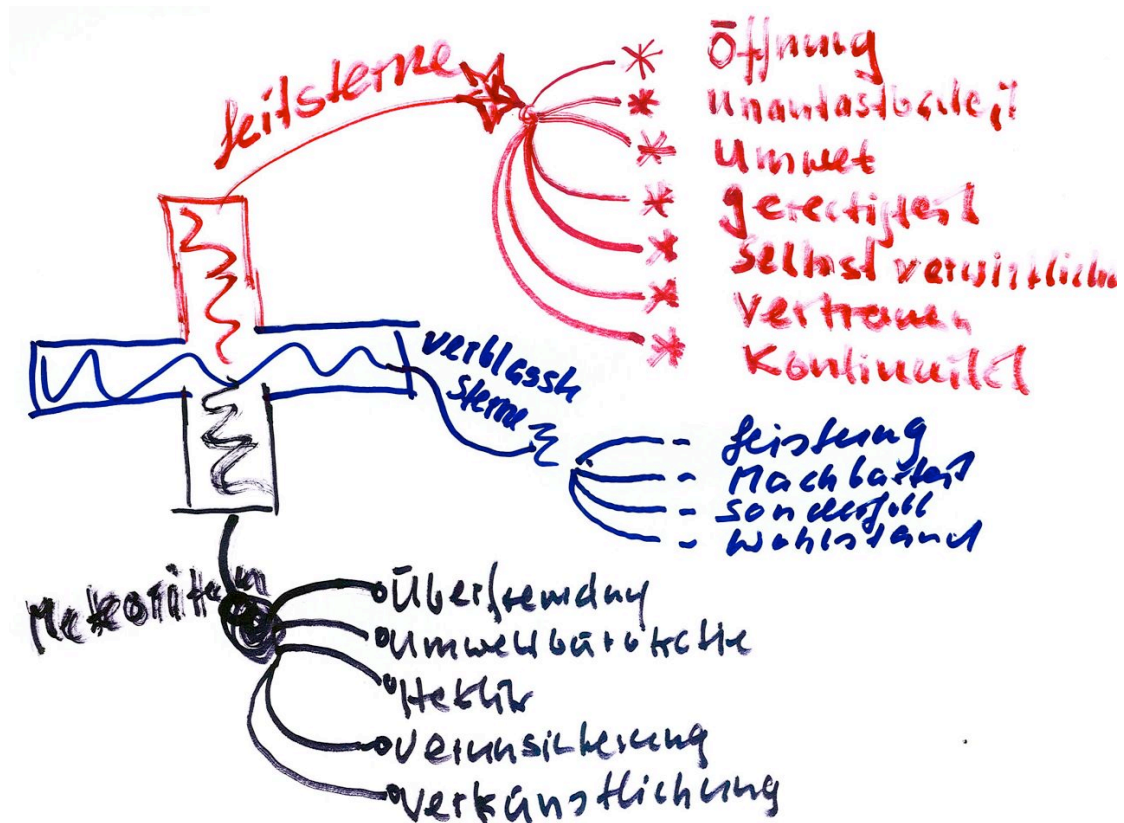 Leitsterne
Öffnung
Unantastbarkeit
Umwelt
Gerechtigkeit
Selbstverwirklich
Vertrauen
Kontinuität
verblasste
Sterne
- Leistung
- Machbarkeit
- Sonderfall
- Wohlstand
Meteoriten
Überfremdung
Umweltbürokratie
Hektik
Verunsicherung
Verkünstlichung